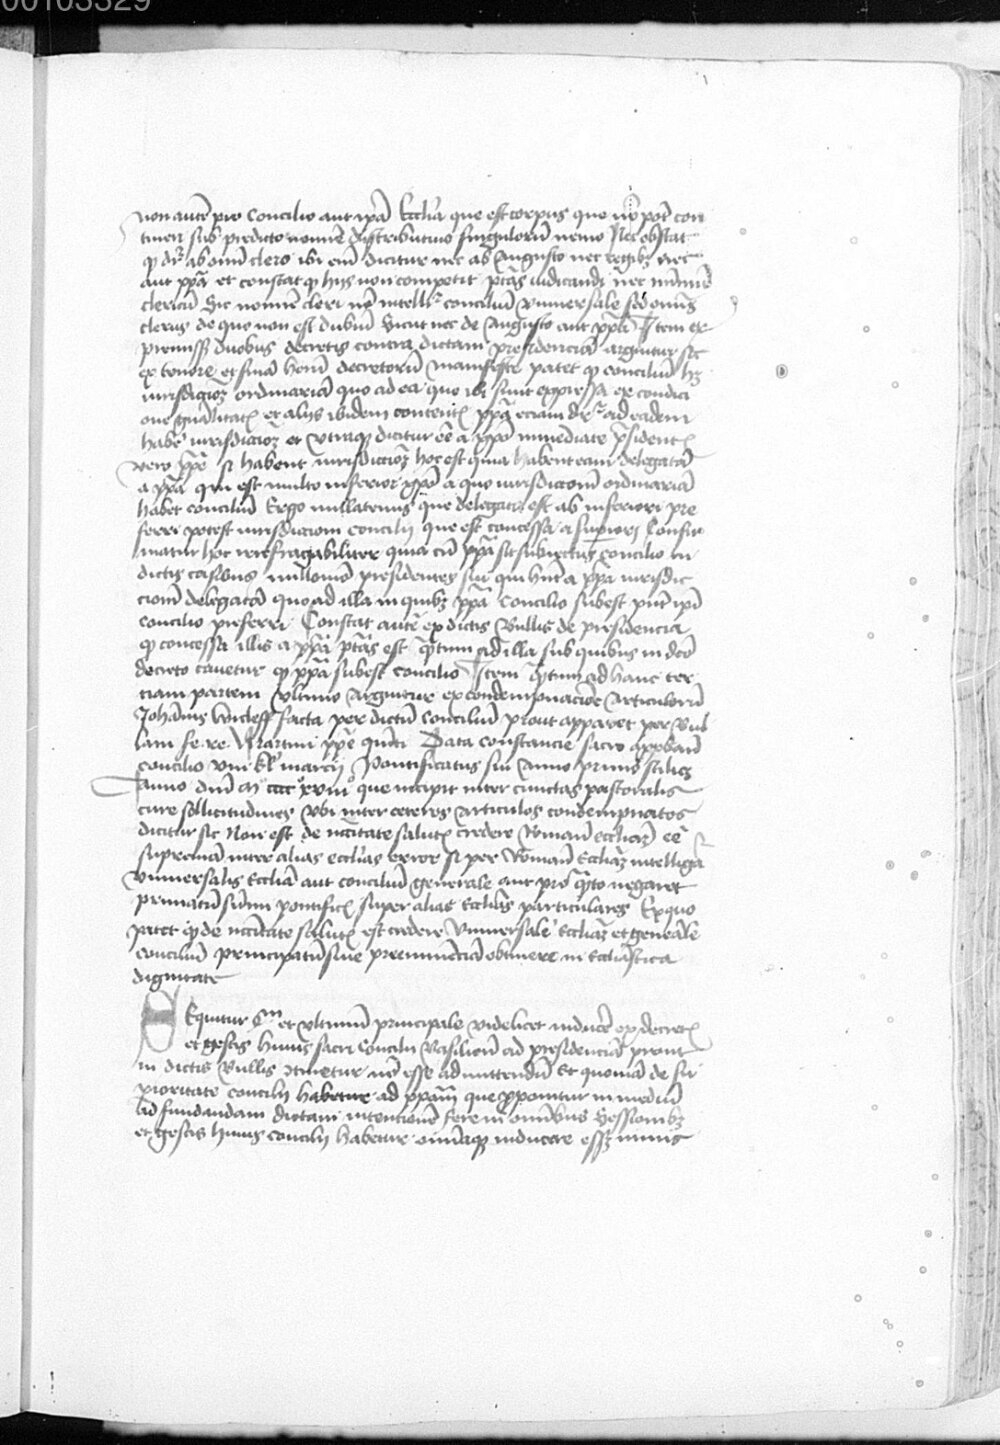 00103329
non autē pro Concilio aut ipā Ecclīa que est corpus que nō pōt con
tineri sub predicto nomīe distributiuo singulorū nemo Nec obstat
ꝙ dr̄ ab omī clero ibi enī dicitur nec ab Augusto nec regibꝫ nec
aut ppā et constat ꝙ hijs non competit ptās iudicandi nec
clericū Sic nomīe cleri nō intellr̄ conciliū vniuersale sed omīs
clerus de quo non est dubiū sicut nec de Augusto aut ppā Item ex
premissis duobus decretis contra dictam presidenciā arguitur sic
ex tenore et finā horū decretorū manifeste patet ꝙ conciliū hꝫ
iurisdictionꝫ ordinariam quo ad ea que ibi sunt expressa ex condici
one et alijs ibidem contentis ppā eciam dr̄ ad eadem
habēe iurisdiccioꝫ et vtraqꝫ dicitur eē a xp̄o immediate p̄sidentes
vero ppē si habent iurisdiccioꝫ hoc est quia habent eam delegatā
a ppā qui est multo inferior xp̄o a quo iurisdiccionē ordinariā
habet conciliū Ergo nullatenus que delegata est ab inferiori pre
ferri potest iurisdiccioni concilij que est concessa a superiori Confir
matur hoc irrefragabiliter quia cū ppā sit subiectus concilio in
dictis casibus nullomō presidentes sui qui hn̄t a ppā iurisdic
cionē delegatā quo ad illa in quibꝫ ppā Concilio subest pn̄t ipī
concilio preferri Constat autē ex dictis bullis de presidencia
ꝙ concessa illis a ppā ptās est quātum ad illa sub quibus in dcō
decreto cauetur ꝙ ppā subest concilio Item quātum ad hanc ter
ciam partem vltimo arguitur ex condempnacione Articulorū
Johānis Wicleff facta per dictū Conciliū prout apparet per bul
lam fe re Martini ppē quīti Data constancie sacro approbāte
concilio viii kl̄ marcij Pontificatus sui Anno primo scilicꝫ
Anno dnī Mo cccc xviiio que incipit inter cunctas pastoralis
cure sollicitudines vbi inter ceteros articulos condempnatos
dicitur sic Non est de necitate salutis credere Romanā eccliaꝫ eē
supremā inter alias ecclīas error si per Romanā Eccliaꝫ intelligat
vniuersalē Eccliā aut conciliū generale aut pro quāto negaret
primatū summi pontificis super alias Ecclīas particulares Ex quo
patet ꝙ de necitate salutis est credere vniuersalē Eccliaꝫ et generale
conciliū principatū siue preeminenciā obtinere in Eccliāstica
dignitate
SEquitur Cm et vltimū principale videlicet inducere ex decretis
et gestis huius sacri Concilij Basilienī ad presidenciā prout
in dictis bullis cōtinetur nō esse admittendū Et quoniā de su
perioritate concilij habetur ad ppam que proponitur in mediū
ad fundandam dictam intencionē fere in omībus Sessionibꝫ
et gestis huius concilij habetur omīaqꝫ inducere esset nimis